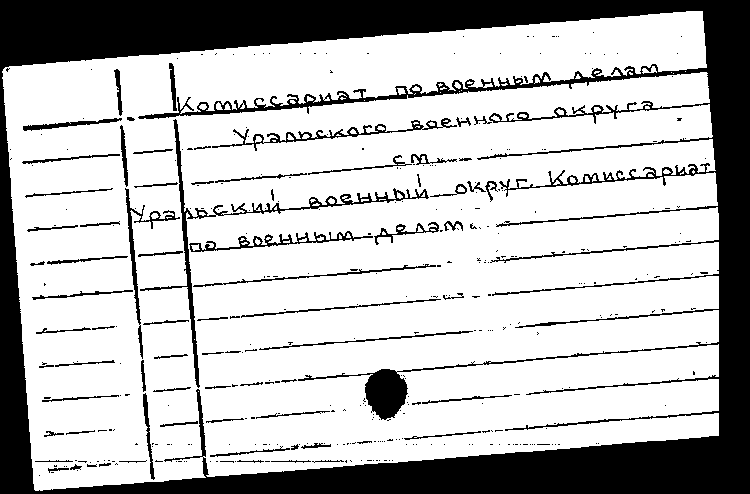 Комиссариат по военным делам
Уральского военного округа
см.
Уральский военный округ. Комиссариат
по военным делам.